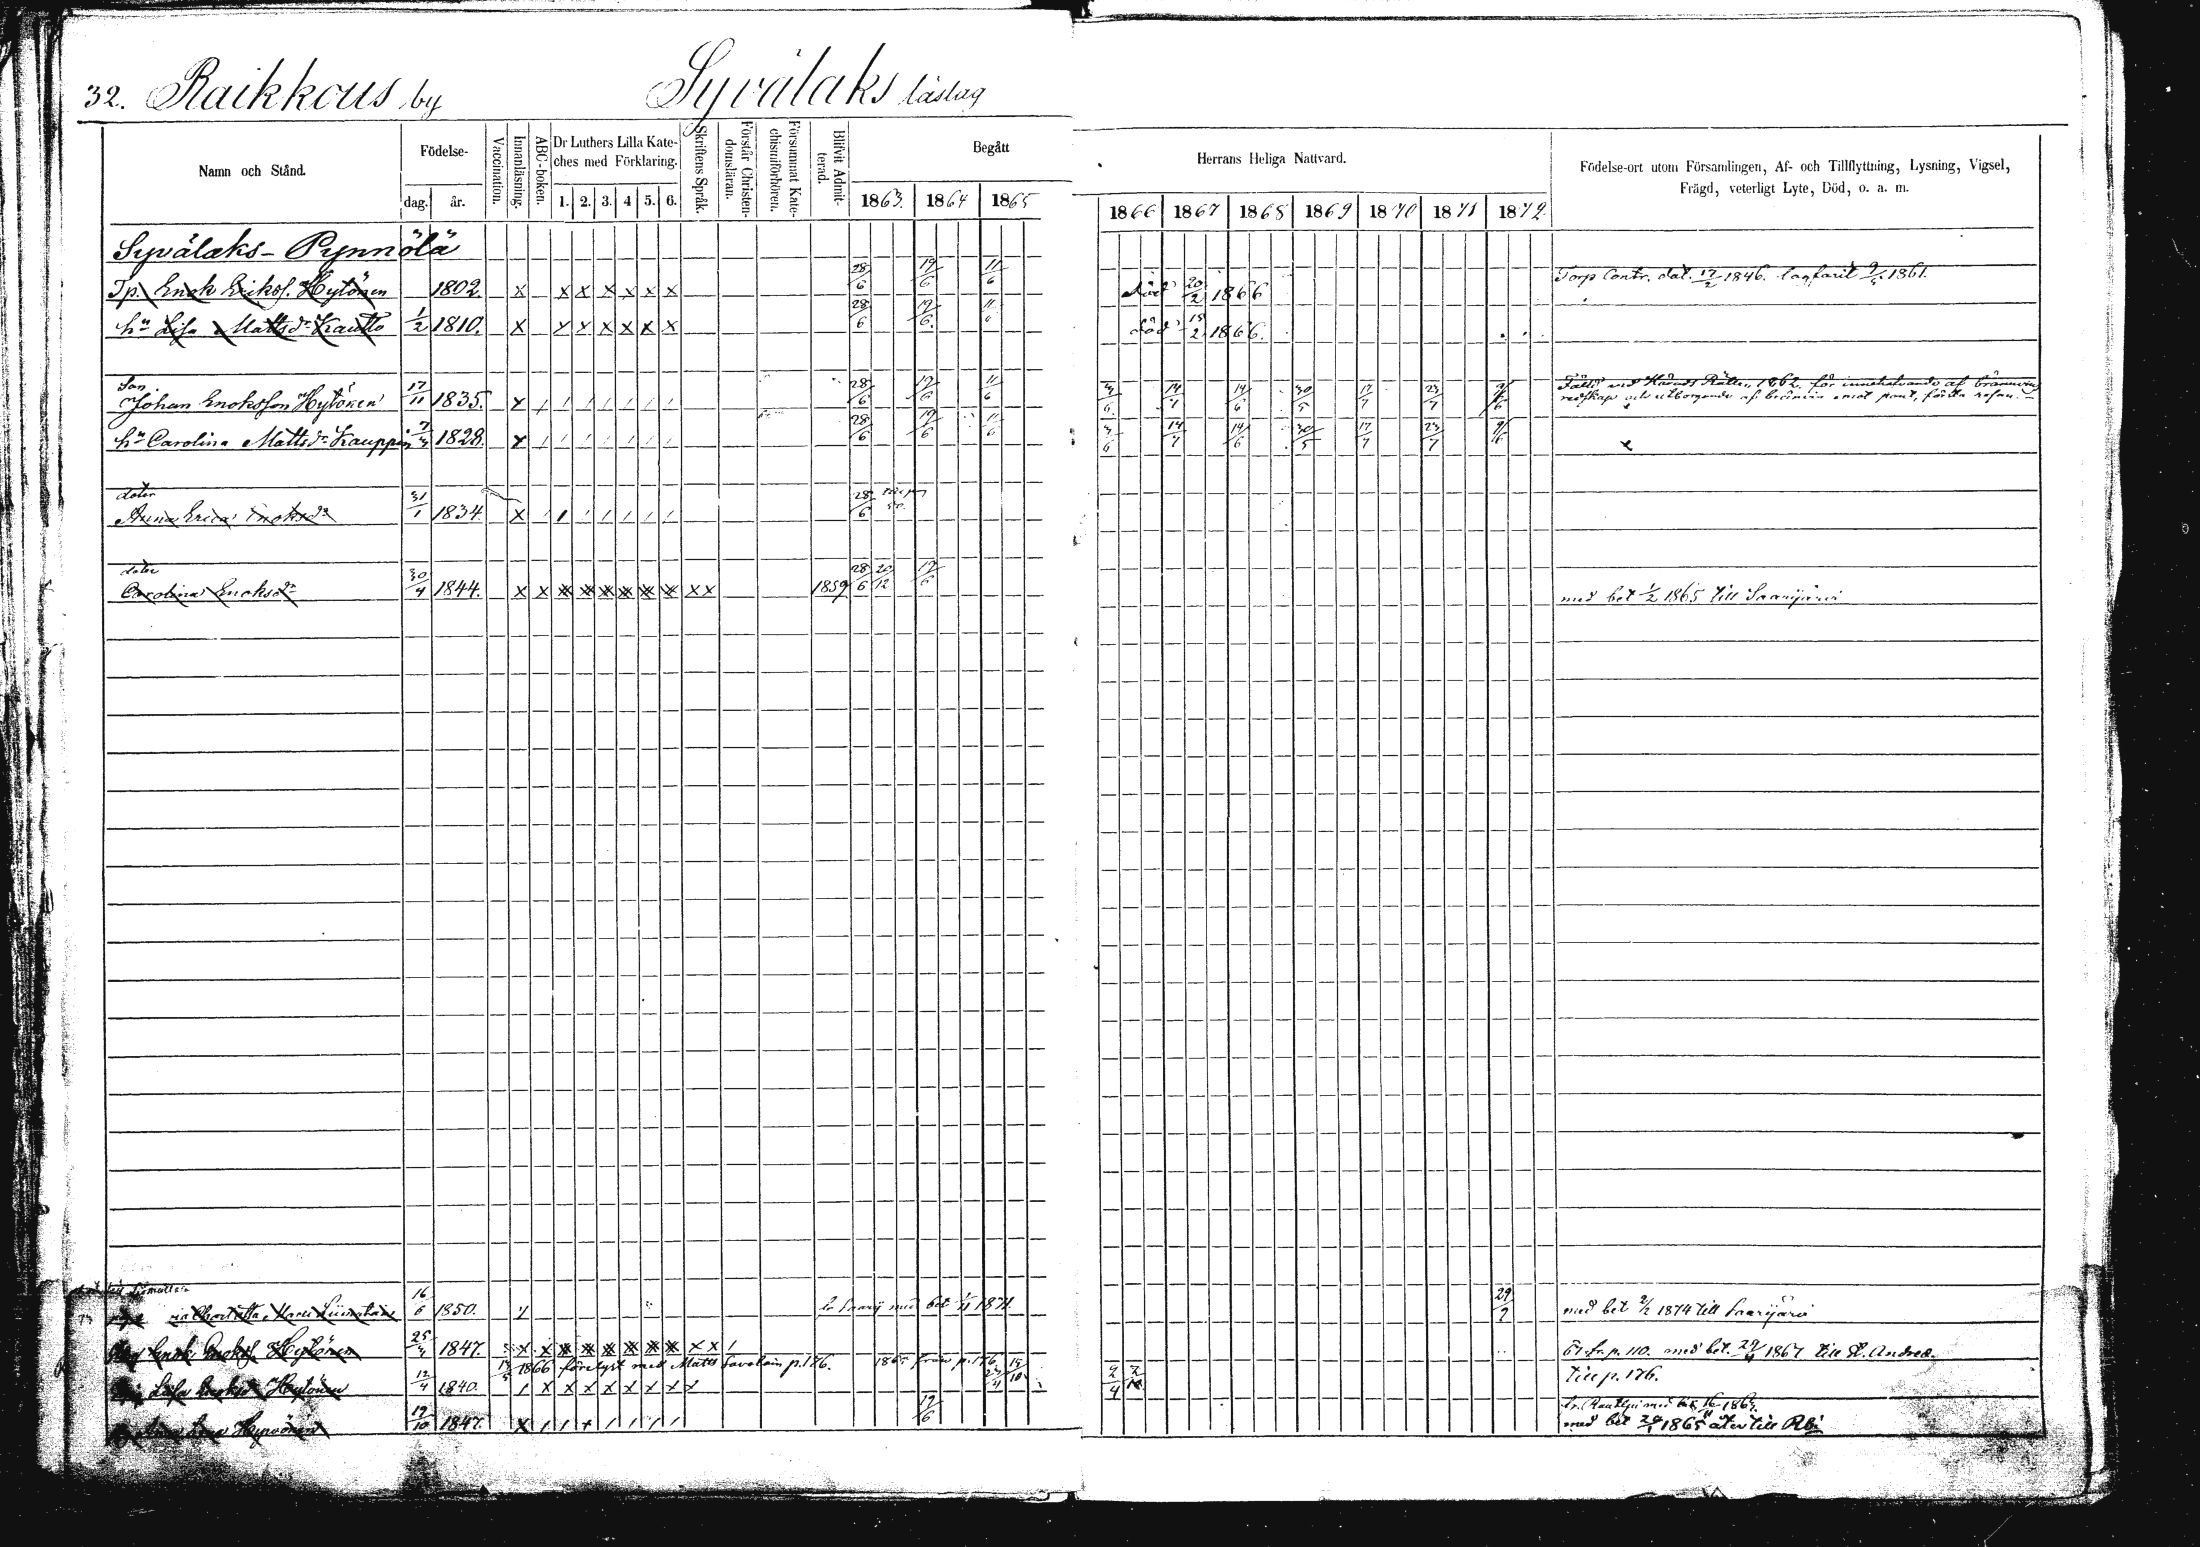 32. Raikkous by Syvälaks läslag
Namn och Stånd.
Födelse-
dag. år.
Vaccination.
Innanläsning.
ABC-boken.
Dr Luthers Lilla Kate-
ches med Förklaring.
1. 2. 3. 4 5. 6.
Skriftens Språk.
Förstår Christen-
domsläran.
Försummat Kate-
chismiförhören.
Blifvit Admit-
terad.
Begått
1863. 1864 1865
Herrans Heliga Nattvard.
1866 1867 1868 1869 1870 1871 1872.
Födelse-ort utom Församlingen, Af- och Tillflyttning, Lysning, Vigsel,
Frägd, veterligt Lyte, Död, o. a. m.
Syvälaks - Pynnölä
Tp. Enok Erikss. Hytönen 1802. x x x x x x x 28/6 19/6 11/6 död 20/2 1866 Torp Contr. dat. 17/2 1846. lagfarit 1861.
hu Lisa Mattsdr Kautto 1/2 1810. x x x x x x x 28/6 19/6. 11/6 död 15/2 1866.
Son
Johan Enoksson Hytönen 17/11 1835. x / / / / / / / 28/6 19/6 11/6 3/6 14/7 14/6 30/5 17/7 23/7 9/6 Fälld vid Härads Rätten 1862. för innehafvande af brännvins
redskap och utborgande af brännvin emot pant, första resan.
hu Carolina Mattsdr Kauppin 7/3 1828. x / / / / / / / 28/6 19/6 11/6 3/6 14/7 14/6 30/5 17/7 23/7 9/6 x
doter
Anna Erica Enoksdr 31/1 1834 x / / / / / / / 28/6
doter
Carolina Enoksdr 30/4 1844. x x x x x x x x x x 1859 28/6 20/12 19/6 med bet 1/2 1865 till Saarijärvi
16/6 1850. fr Saarij med bet 1/11 1871. 29/7 med bet 2/2 1874 till Saarijärvi
Enok Enokss. Hytönen 25/4 1847. x x x x x x x x x x / fr. p. 110. med bet. 29/4 1867 till St. Andreæ.
1866 förelyst med Matts Savolain p. 176. 1865 från p. 176
Lisa Hytönen 12/4 1840. / x x x x x x x x till p. 176.
Hyvönen 19/10 1847. x / / + / / / / 19/6
med bet 1865 åter till Rbi